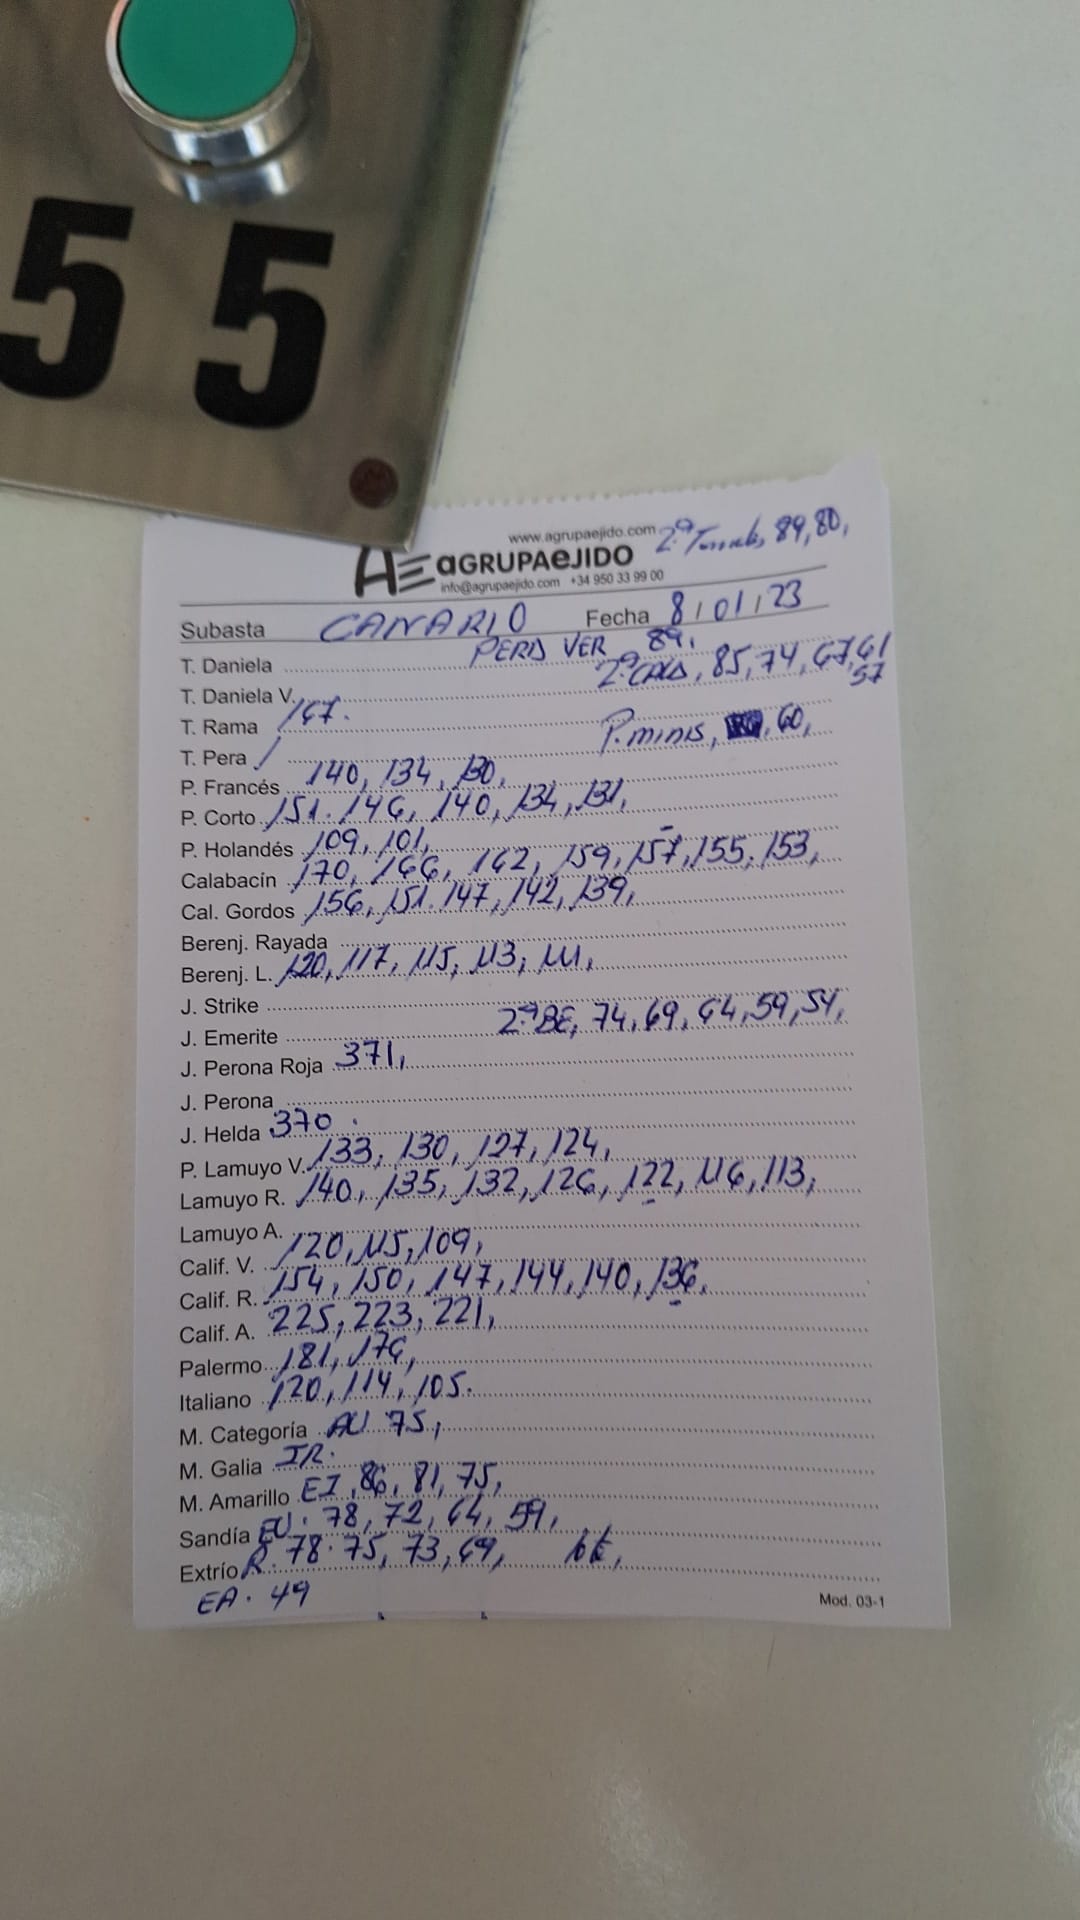 55
www.agrupaejido.com 2ª 89,80,
AE aGRUPAeJIDO
info@agrupaejido.com +34 950 33 99 00
Subasta CANARIO Fecha 8/01/23
PERD VER 89,
T. Daniela 2ª CALA, 85,74,67,61
57
T. Daniela V.
T. Rama 167. P.minis, 60,
T. Pera /
P. Francés 140, 134, 130,
P. Corto 151. 146, 140, 134, 131,
P. Holandés 109, 101,
Calabacín 170, 166, 162, 159, 157, 155, 153,
Cal. Gordos 156, 151. 147, 142, 139,
Berenj. Rayada
Berenj. L. 120, 117, 115, 113, 111,
J. Strike
J. Emerite 2ª BE, 74,69,64,59,54,
J. Perona Roja 371,
J. Perona
J. Helda 370.
P. Lamuyo V. 133, 130, 127, 124,
Lamuyo R. 140, 135, 132, 126, 122, 116, 113,
Lamuyo A.
Calif. V. 120, 115, 109,
Calif. R. 154, 150, 147, 144, 140, 136,
Calif. A. 225, 223, 221,
Palermo 181, 176,
Italiano 120, 114, 105.
M. Categoría AU 75,
M. Galia IR.
M. Amarillo EI, 86, 81, 75,
Sandía EU. 78, 72, 64, 59,
Extrío R. 78. 75, 73, 69,
EA. 49
Mod. 03-1